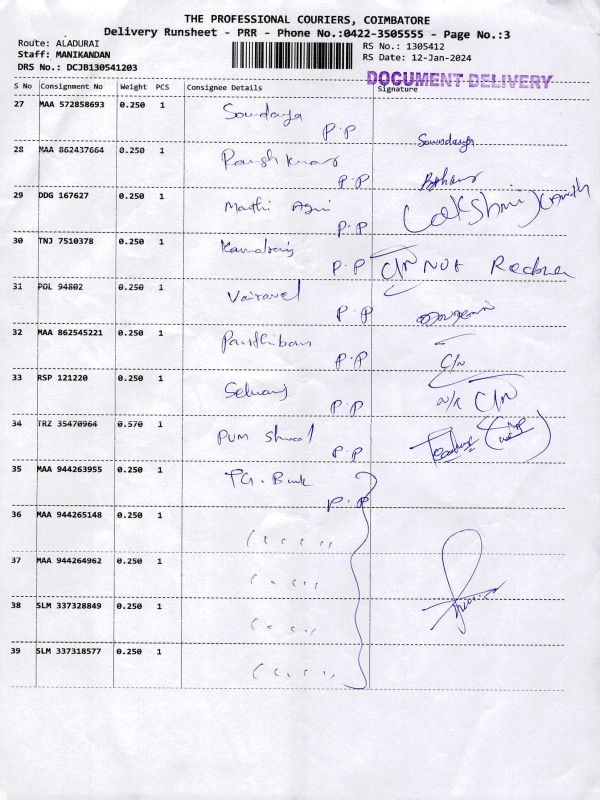 THE PROFESSIONAL COURIERS, COIMBATORE
Delivery Runsheet - PRR - Phone No.:0422-3505555 - Page No.:3
Route: ALADURAI
Staff: MANIKANDAN
DRS No.: DCJB130541203
RS No.: 1305412
RS Date: 12-Jan-2024
DOCUMENT DELIVERY
S No Consignment No Weight PCS Consignee Details Signature
27 MAA 572858693 0.250 1 Soundarya P.P Soundarya
28 MAA 862437664 0.250 1 P.P
29 DDG 167627 0.250 1 Marthi Agri P.P Lakshmi
30 TNJ 7510378 0.250 1 Kamalraj P.P C/N Not
31 POL 94802 0.250 1 Vairavel P.P
32 MAA 862545221 0.250 1 Parthiban P.P C/N
33 RSP 121220 0.250 1 P.P N/R C/N
34 TRZ 35470964 0.570 1 PUM P.P
35 MAA 944263955 0.250 1 P.P
36 MAA 944265148 0.250 1
37 MAA 944264962 0.250 1
38 SLM 337328849 0.250 1
39 SLM 337318577 0.250 1